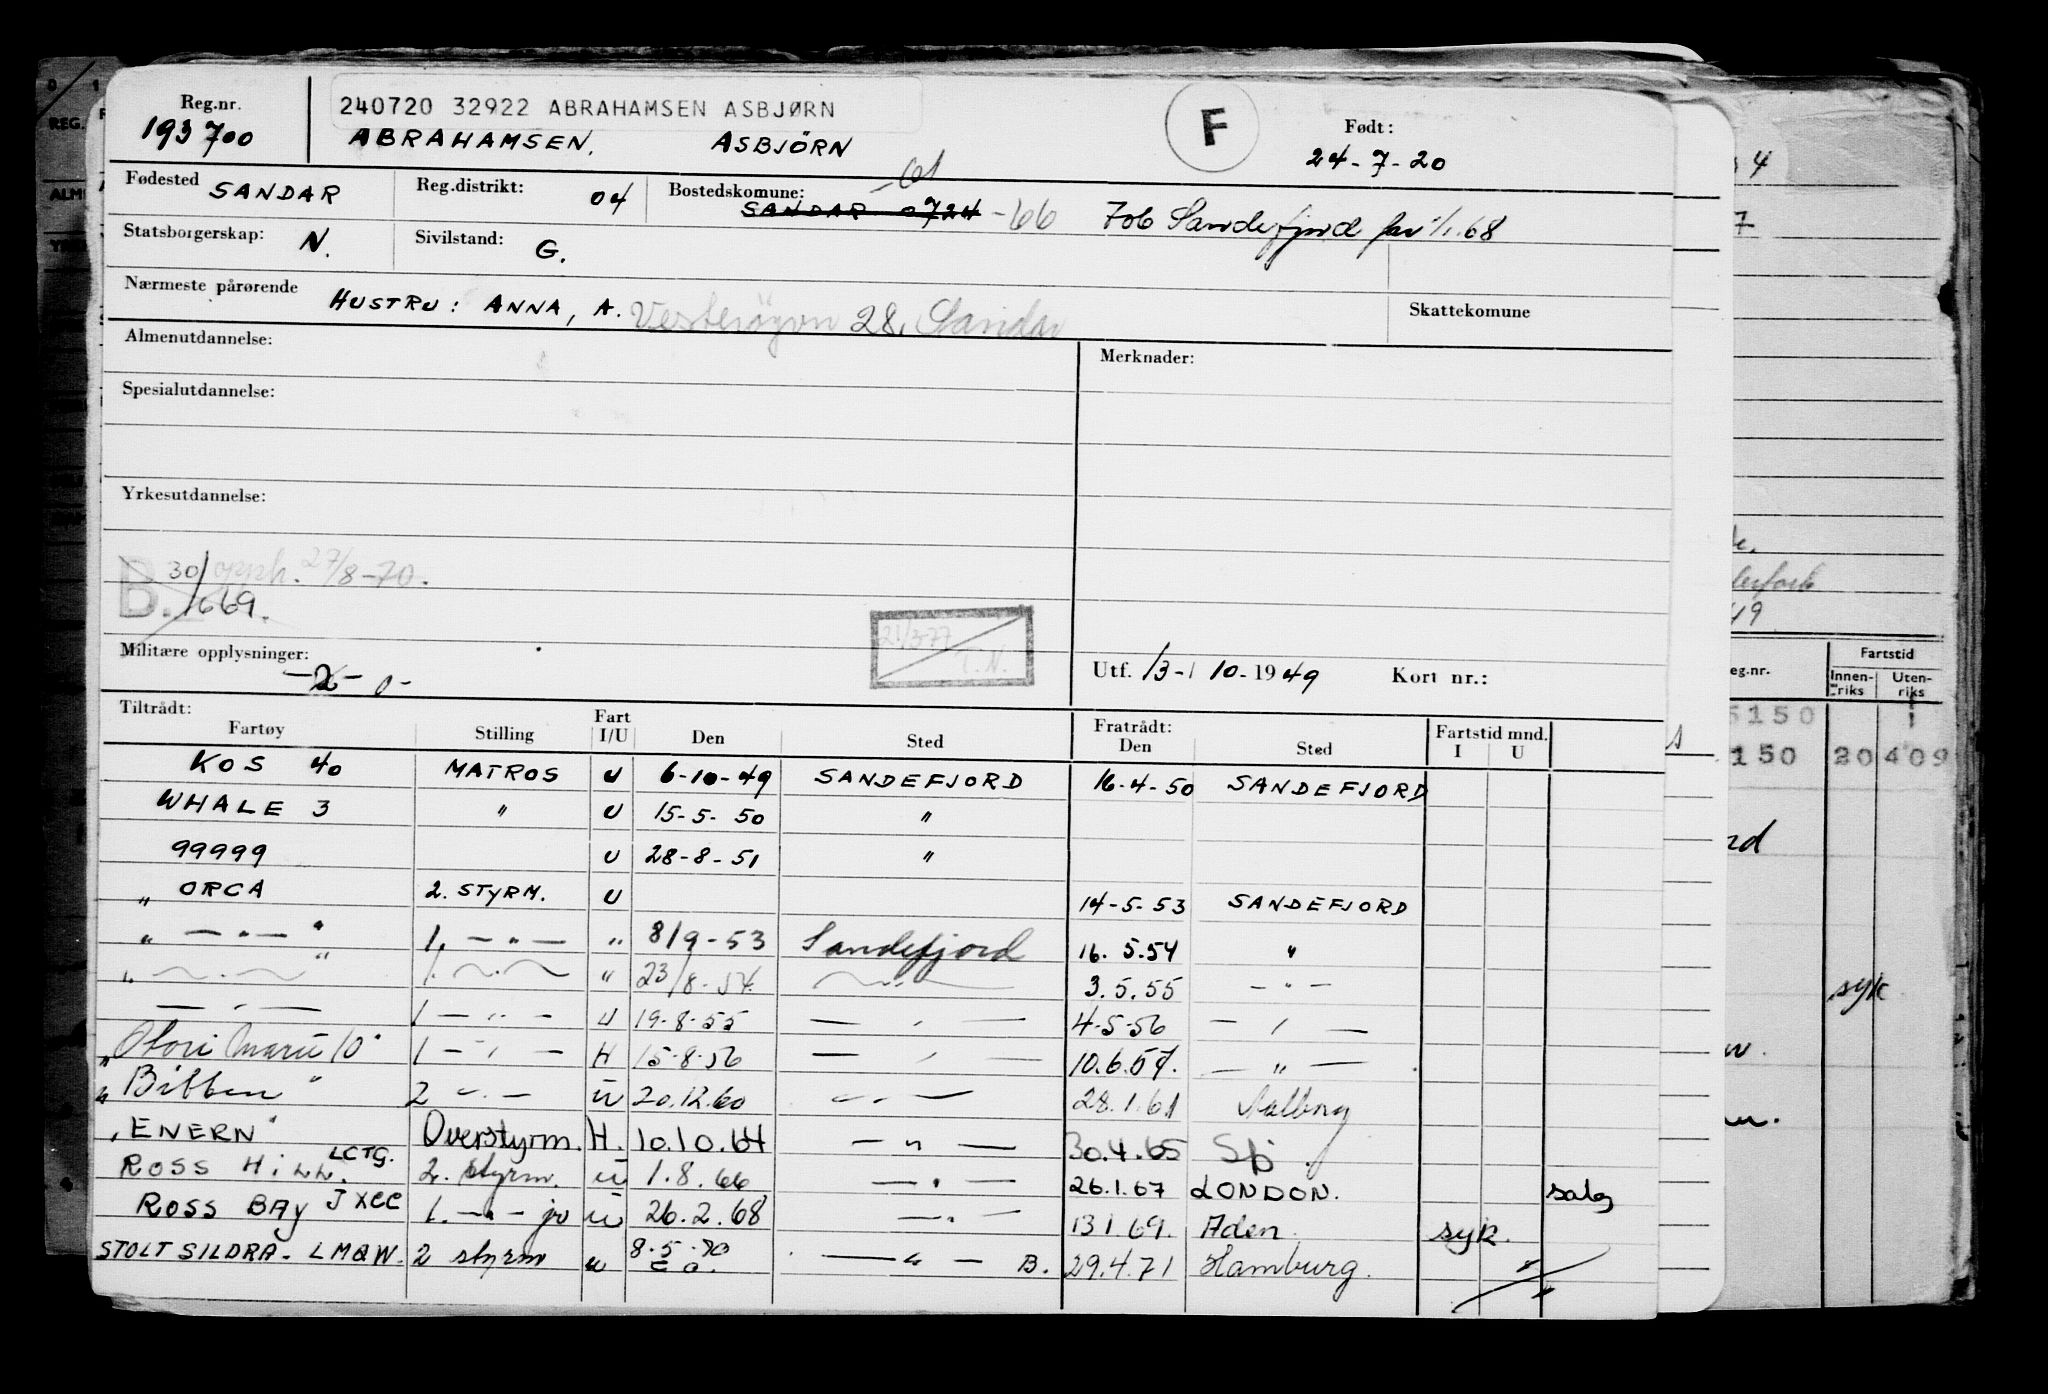 Reg.nr. 193 700
240720 32922 ABRAHAMSEN ASBJØRN
ABRAHAMSEN, ASBJÖRN
F
Født: 24-7-20
Fødested SANDAR
Reg.distrikt: 04
Bostedskomune: SANDAR 0724 -66 706 Sandefjord fra 1/1.68
Statsborgerskap: N.
Sivilstand: G.
Nærmeste pårørende HUSTRU: ANNA, A. Vesterøyvn 28, Sandar
Skattekomune
Almenutdannelse:
Merknader:
Spesialutdannelse:
Yrkesutdannelse:
B. 30/1669. opph. 27/8-70.
21/3-77
Militære opplysninger:
Utf. 13-10-1949 Kort nr.:
Tiltrådt: Fratrådt: Fartstid mnd.
Fartøy Stilling Fart I/U Den Sted Den Sted I U
KOS 40 MATROS U 6-10-49 SANDEFJORD 16-4-50 SANDEFJORD
WHALE 3 " U 15-5-50 "
99999 U 28-8-51 "
" ORCA 2. STYRM. U 14-5-53 SANDEFJORD
" — " — " 1. — " — " 8/9-53 Sandefjord 16.5.54 "
" — " — " 1. — " — " 23/8-54 — " — 3.5.55 — " —
— " — 1 — " — U 19-8-55 — " — 4-5-56 — " —
" Otori Maru 10" 1 — " — H 15-8-56 — " — 10.6.57. — " —
" Bibben " 2 — " — U 20.12.60 — " — 28.1.61 Aalborg
"ENERN" Overstyrm. H. 10.10.64 — " — 30.4.65 Sfj.
ROSS HILL LCTG. 2. styrm. U 1.8.66 — " — 26.1.67 LONDON. salg
ROSS BAY JXCC 1. — " — jr U 26.2.68 — " — 13 1 69. Aden. syk.
STOLT SILDRA - LMQW. 2 styrm U 8.5.70 — " — B. 29.4.71 Hamburg.
Fartstid
Innen-riks Uten-riks
150 20 409
syk